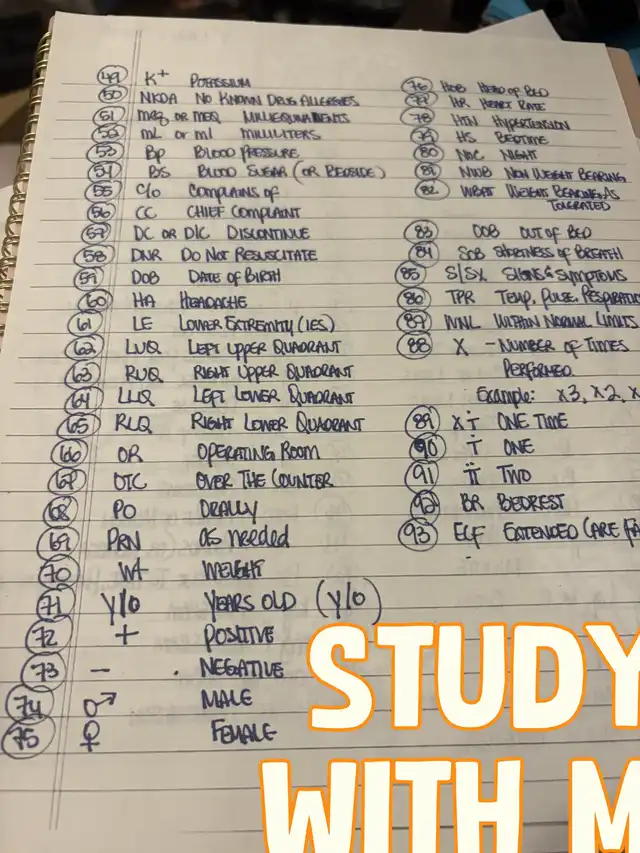 49 K+ Potassium
50 NKDA No Known Drug Allergies
51 meq or MEQ Milliequivalents
52 mL or ml Milliliters
53 Bp Blood Pressure
54 BS Blood Sugar (or Bedside)
55 C/o Complains of
56 CC Chief Complaint
57 DC or D/C Discontinue
58 DNR Do Not Resuscitate
59 DOB Date of Birth
60 HA Headache
61 LE Lower Extremity (ies)
62 LUQ Left Upper Quadrant
63 RUQ Right Upper Quadrant
64 LLQ Left Lower Quadrant
65 RLQ Right Lower Quadrant
66 OR Operating Room
67 OTC Over The Counter
68 PO Orally
69 PRN as needed
70 Wt Weight
71 Y/O Years Old (Y/O)
72 + Positive
73 – . Negative
74 ♂ Male
75 ♀ Female
76 HOB Head of Bed
77 HR Heart Rate
78 HTN Hypertension
79 HS Bedtime
80 NOC Night
81 NWB Non Weight Bearing
82 WBAT Weight Bearing As
Tolerated
83 OOB Out of Bed
84 SOB Shortness of Breath
85 S/SX Signs & Symptoms
86 TPR Temp, Pulse, Respiratio
87 WNL Within Normal Limits
88 X - Number of Times
Performed
Example: x3, x2, x
89 x i̇ One Time
90 i̇ One
91 ii Two
92 BR Bedrest
93 ECF Extended Care Fa
STUDY
WITH M